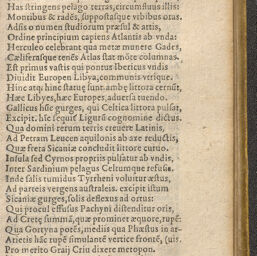 Has stringens pelago terras, circumsluus illisi:
Montibus & radēs, suppostasque vrbibus oras.
Adsis o numen studiorum præsul & actis,
Ordine principium capiens Atlantis ab vnda:
Herculeo celebrant qua metæ munere Gades,
Cæliferasque tenēs Atlas stat mōte columnas.
Est primus vastis qui pontus Ibericus vndis
Diuidit Europen Libya, communis vtrique.
Hinc atq; hinc statuę sunt: ambę littora cernūt,
Hæc Libyes, hæc Europes, aduersa tuendo.
Gallicus hūc gurges, qui Celtica littora pulsat,
Excipit. hūc sequit Ligurū cognomine dictus.
Qua domini rerum terris creuere Latinis,
Ad Petram Leucen aquilonis ab axe reductis,
Quæ freta Sicaniæ concludit littore curuo.
Insula sed Cyrnos propriis pulsatur ab vndis,
Inter Sardinium pelagus Celtumque refusa.
Inde salis tumidus Tyrrheni voluitur æstus,
Ad parteis vergens australeis. excipit istum
Sicaniæ gurges, solis deflexus ad ortus:
Qui procul effusus Pachyni distenditur oris,
Ad Cretę summā, quæ prominet æquore, rupē:
Qua Gortyna potēs, mediis qua Phæstus in ar-
Arietis hāc rupē simulantē vertice frontē, (uis.
Pro merito Graij Criu dixere metopon.